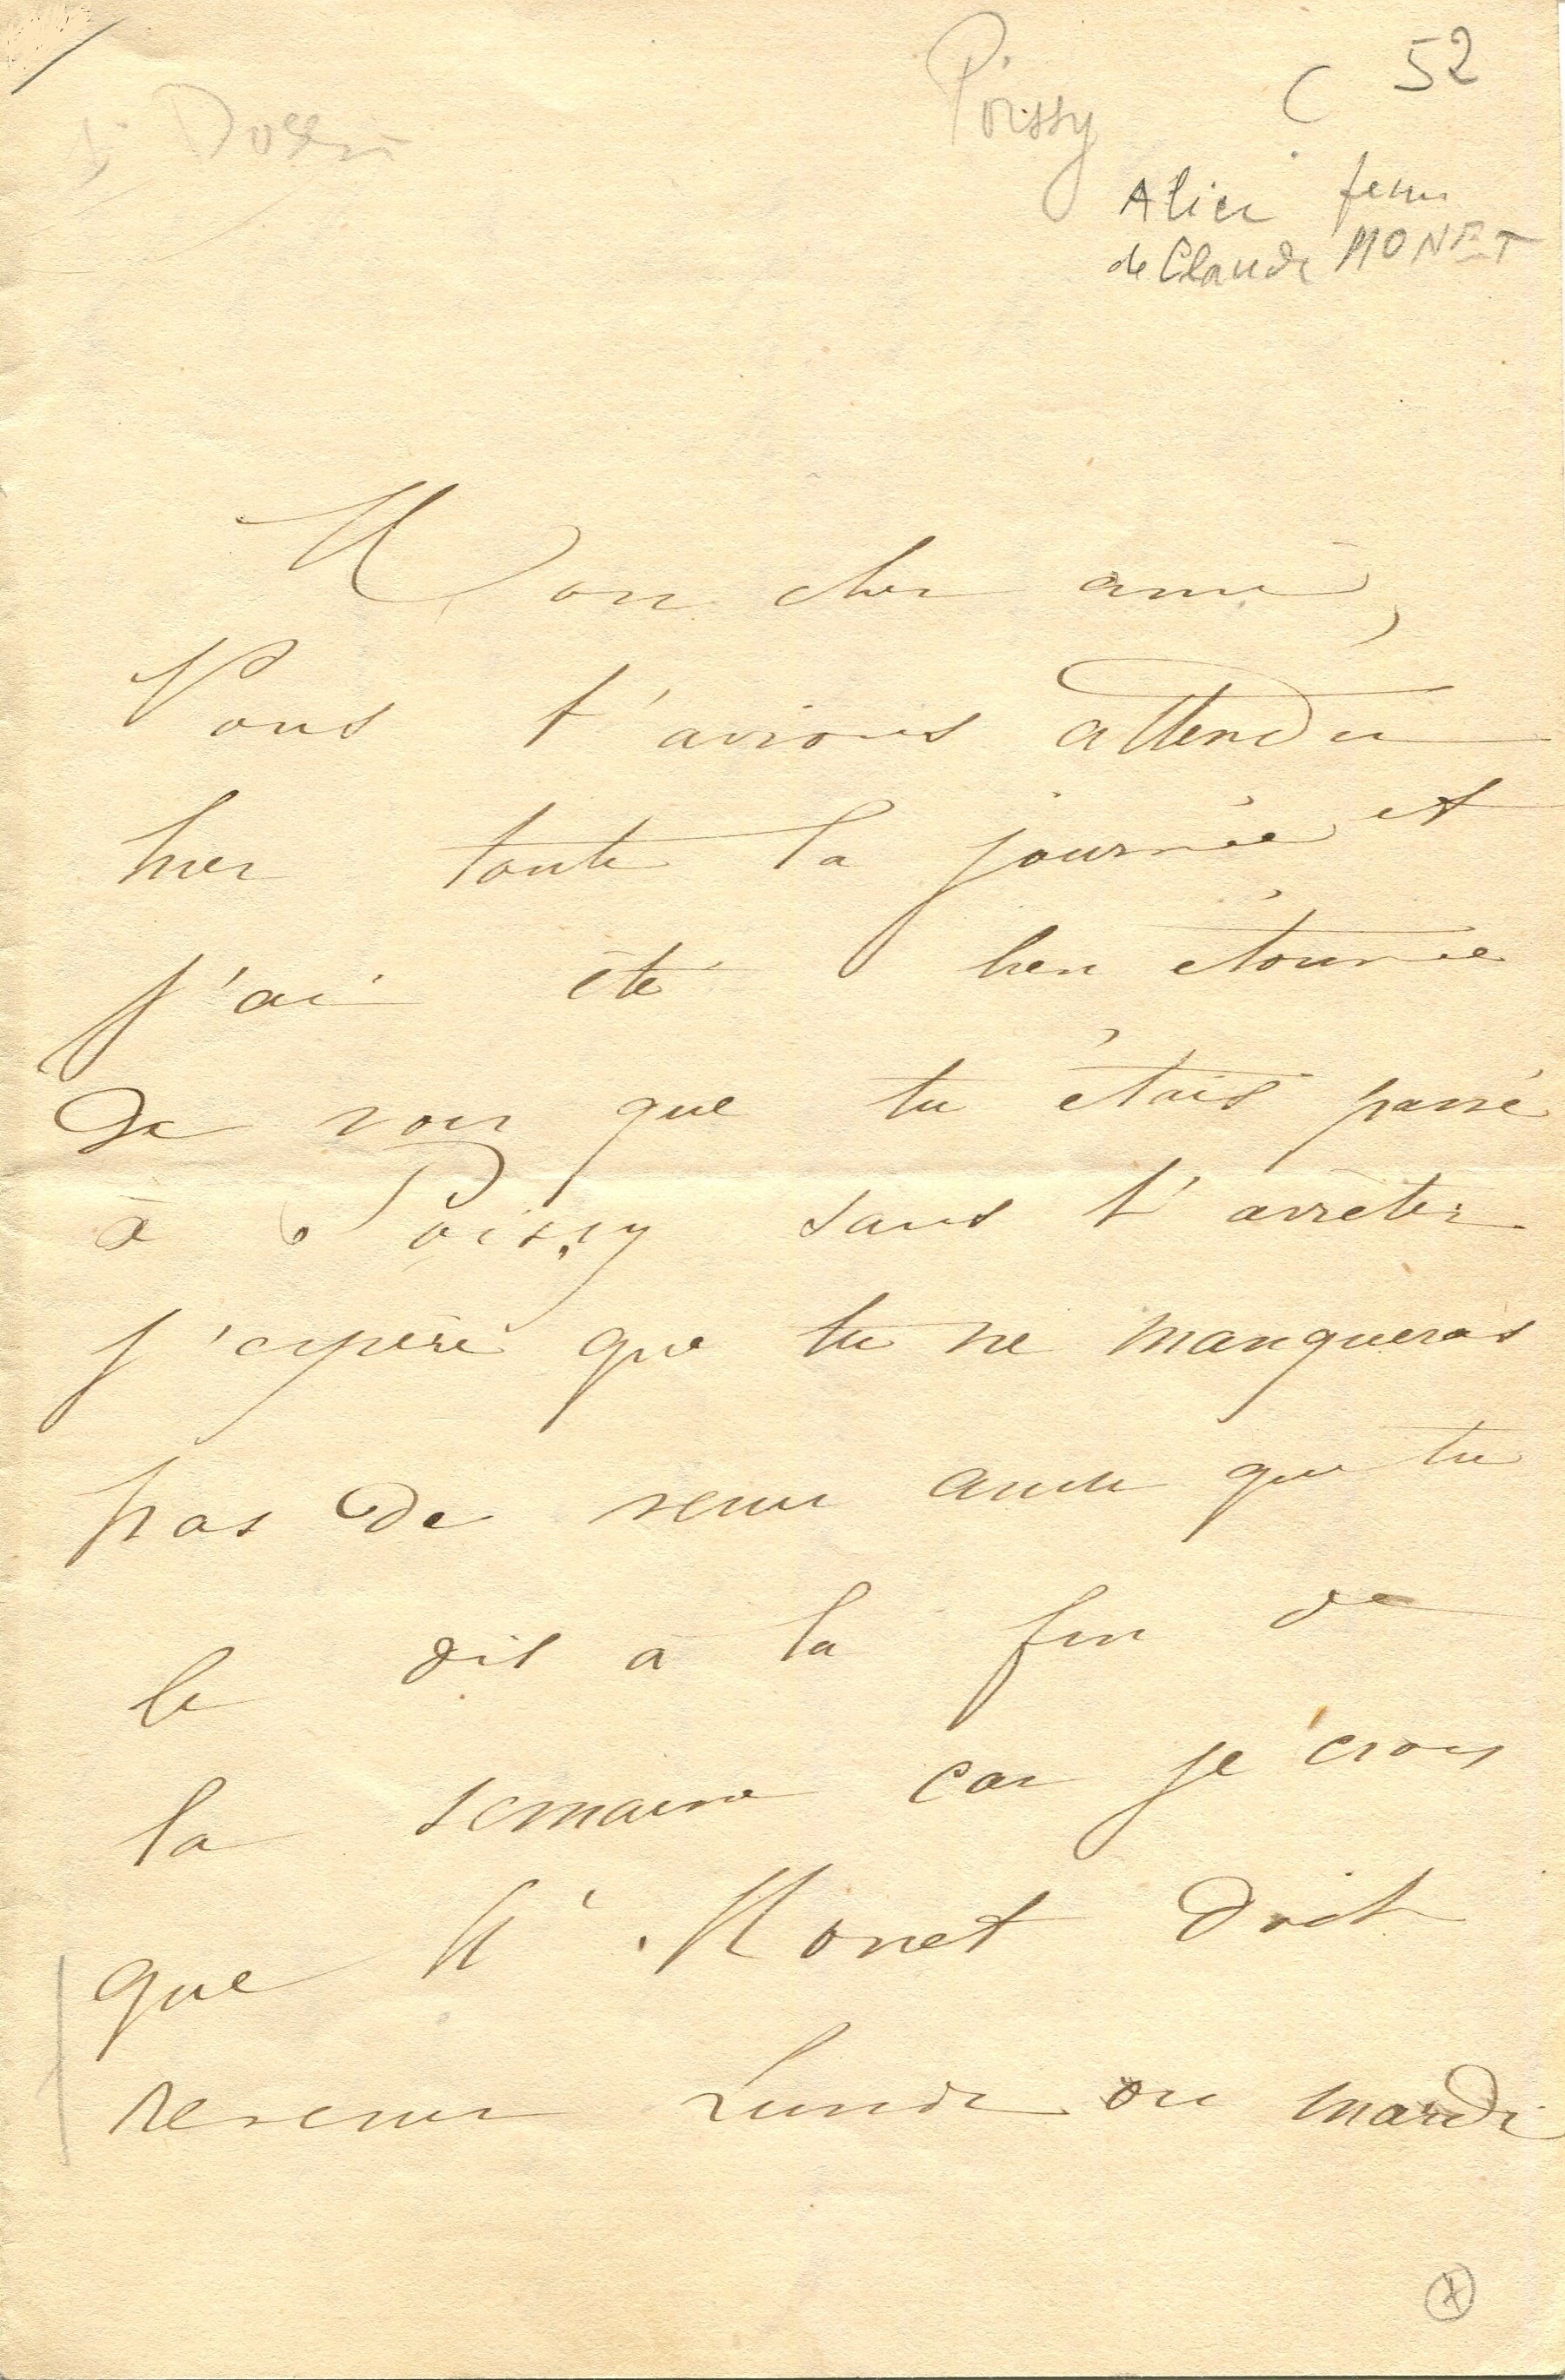 Poissy C 52
Alice femme
de Claude MONET
Mon cher ami,
Nous t'avions attendu
hier toute la journée et
j'ai été bien étonnée
de voir que tu étais passé
à Poissy sans t'arrêter
j'espère que tu ne manqueras
pas de venir que tu
le dis à la fin de
la semaine car je crois
que Mr Monet doit
revenir Lundi ou mardi